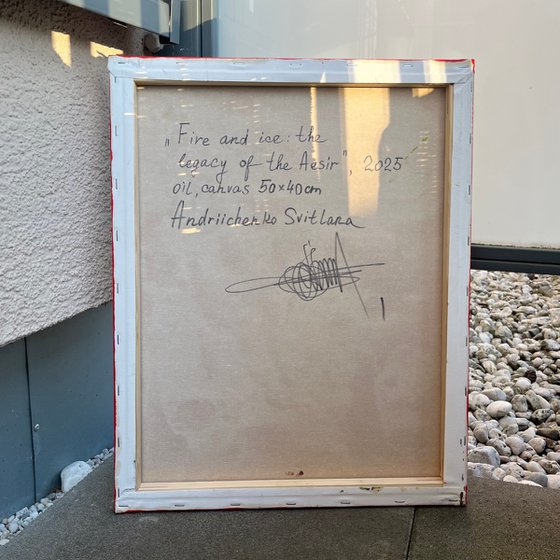 „Fire and ice: the
legacy of the Aesir", 2025
oil, canvas 50×40cm
Andriichenko Svitlana